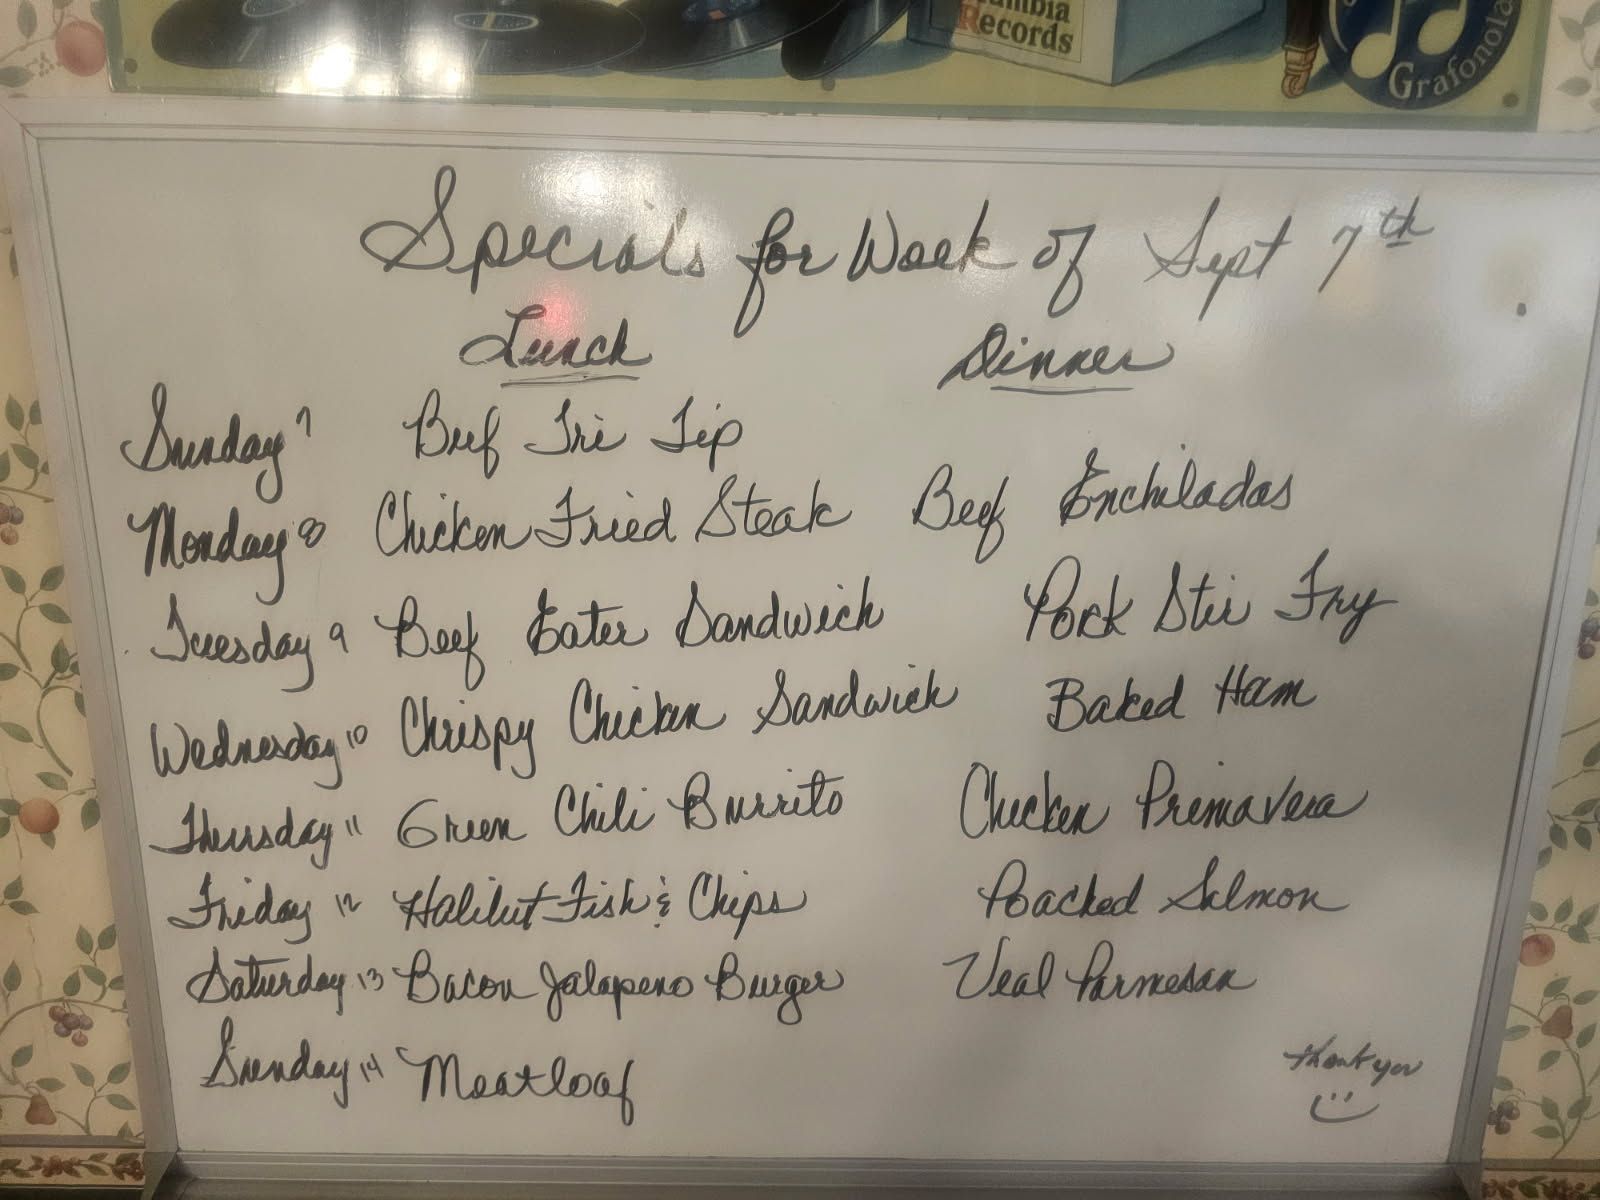 Records
Grafonola
Specials for Week of Sept 7th
Lunch Dinner
Sunday 7 Beef Tri Tip
Monday 8 Chicken Fried Steak Beef Enchiladas
Tuesday 9 Beef Eater Sandwich Pork Stir Fry
Wednesday 10 Chrispy Chicken Sandwich Baked Ham
Thursday 11 Green Chili Burrito Chicken Primavera
Friday 12 Halibut Fish & Chips Poached Salmon
Saturday 13 Bacon Jalapeno Burger Veal Parmesan
Sunday 14 Meatloaf
thank you